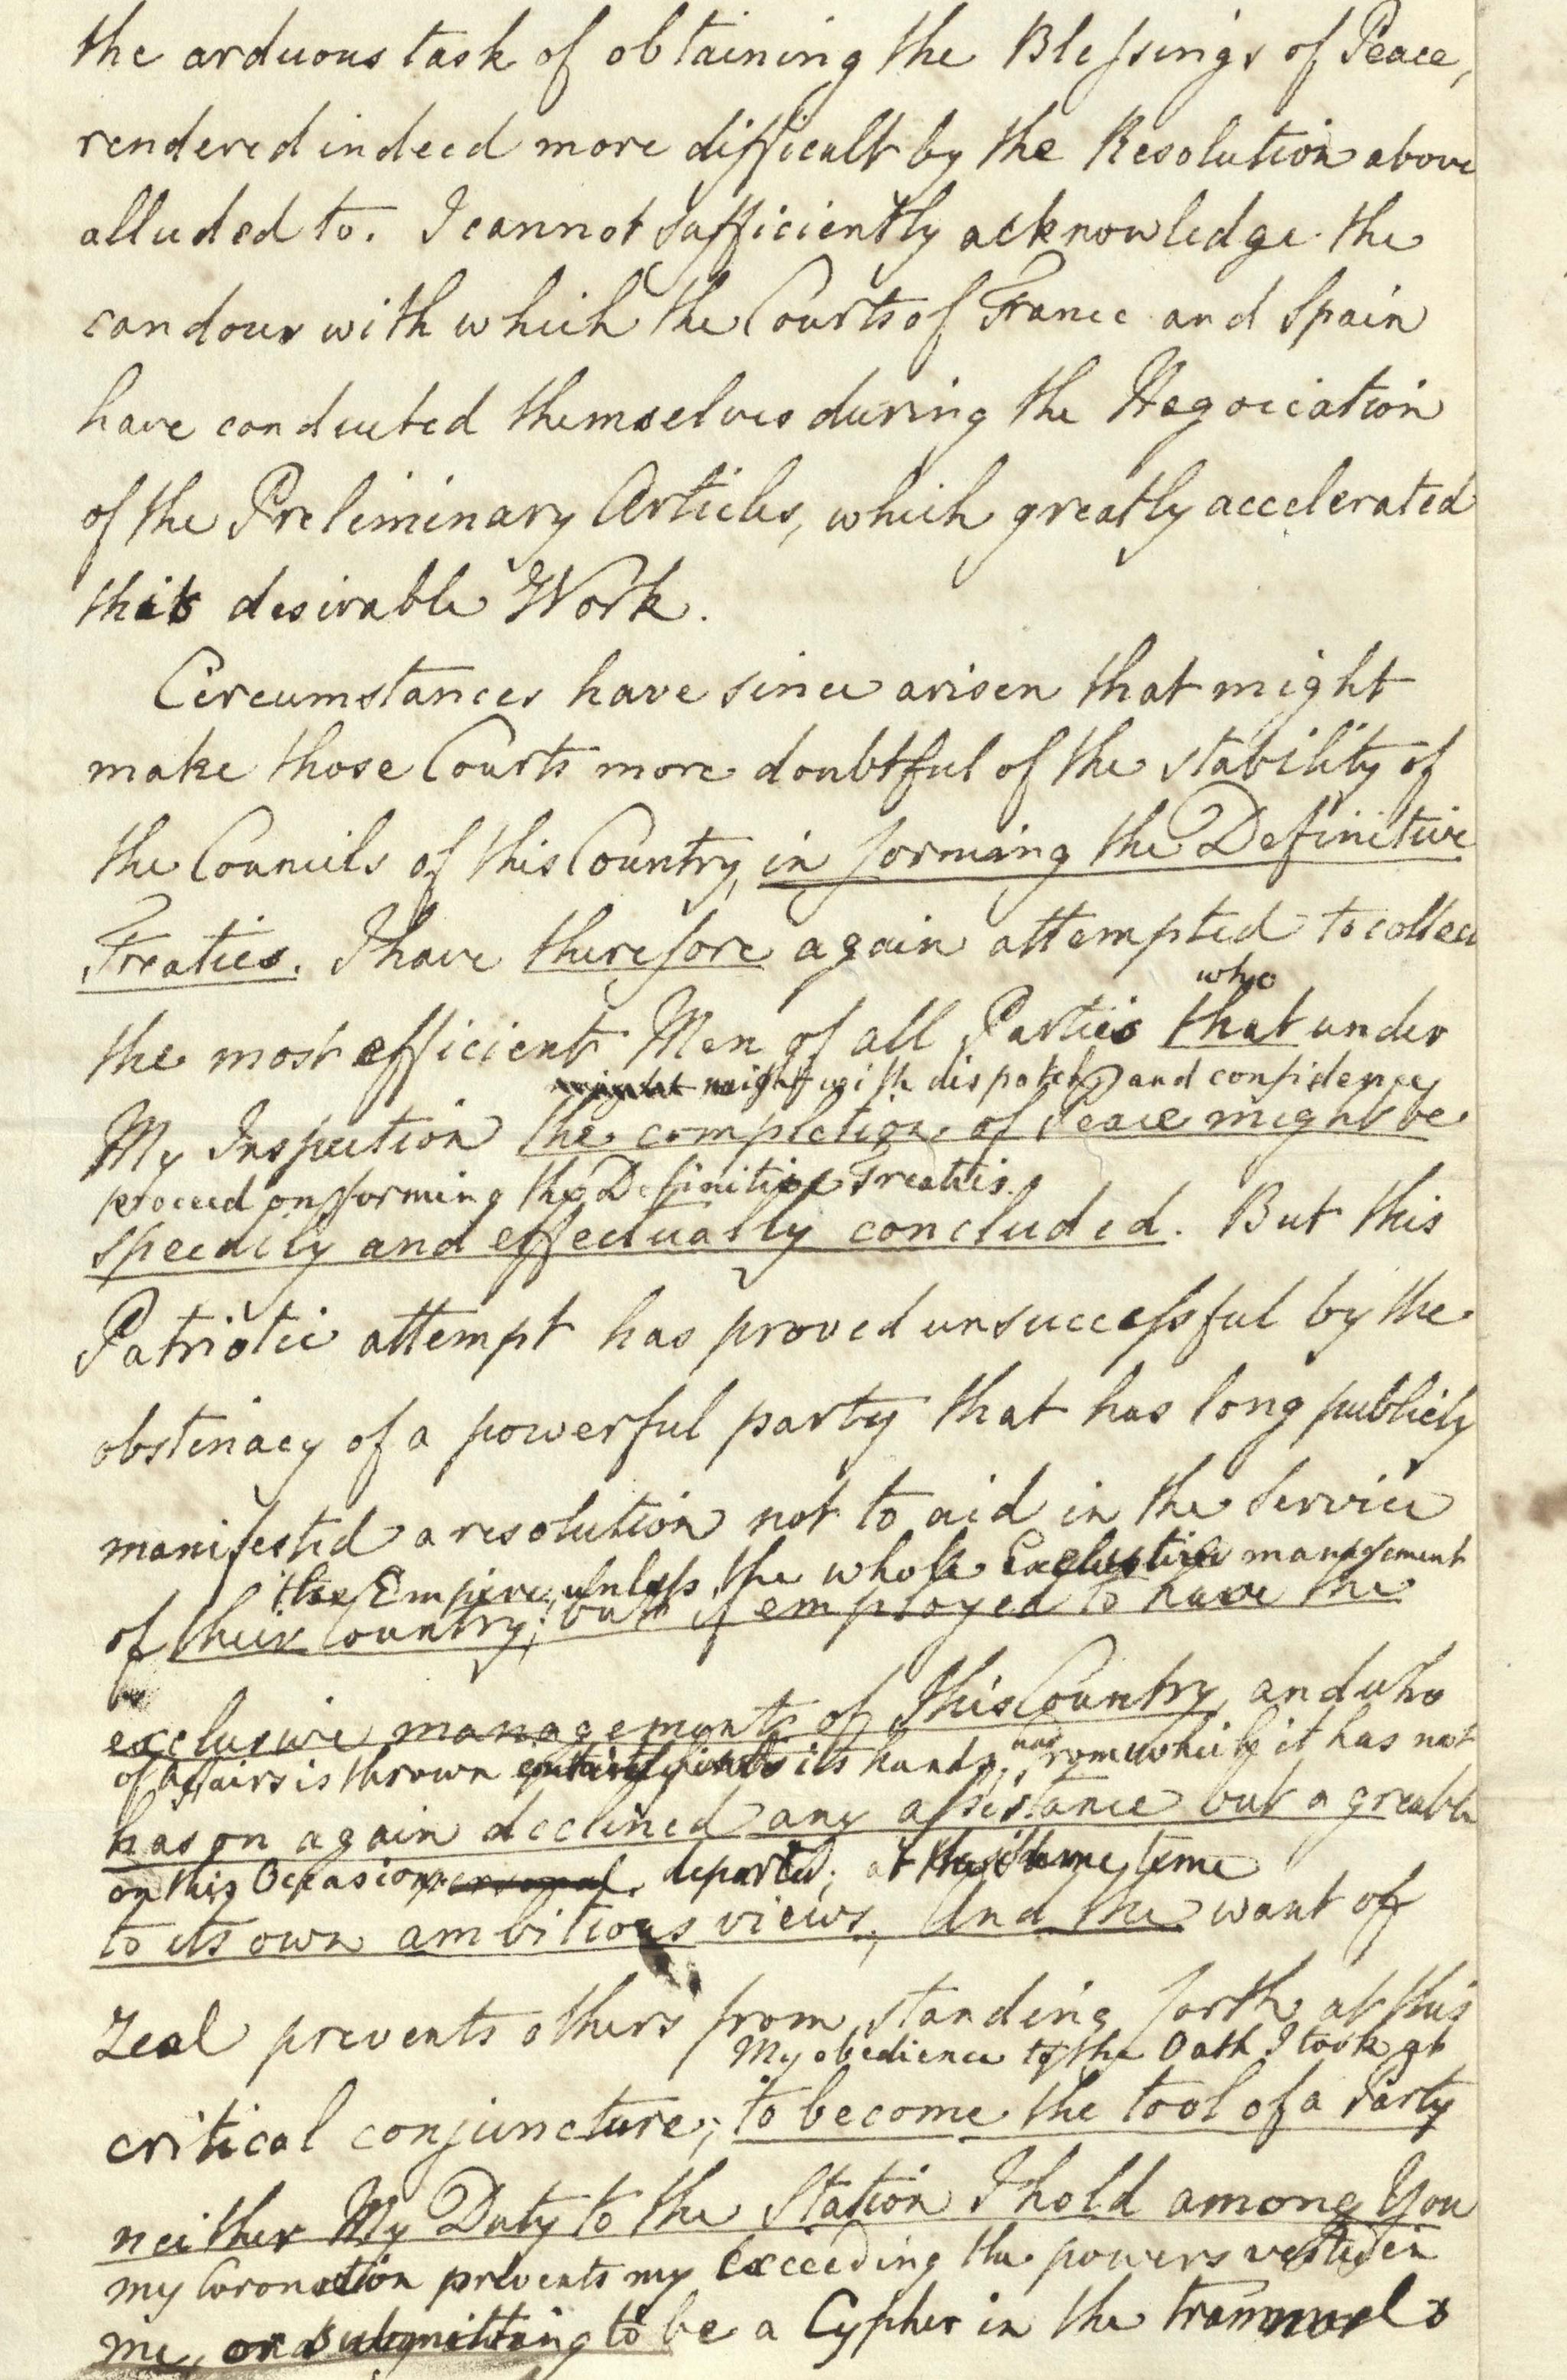 the arduous task of obtaining the Blessings of Peace,
rendered indeed more difficult by the Resolution above
alluded to. I cannot sufficiently acknowledge the
candour with which the Courts of France and Spain
have conducted themselves during the Negociation
of the Preliminary Articles, which greatly accelerated
this desirable Work.
Circumstances have since arisen that might
make those Courts more doubtful of the stability of
the Councils of this Country, in forming the Definitive
Treaties. I have therefore again attempted to collect
who
the most efficient Men of all Parties that under
might with dispatch and confidence
My Inspection the completion of Peace might be
proceed on forming the Definitive Treaties.
speedily and effectually concluded. But this
Patriotic attempt has proved unsuccessful by the
obstinacy of a powerful party that has long publicly
manifested a resolution not to aid in the Service
the Empire, unless the whole management
of their Country; but if employed to have the
exclusive management of this Country, and who
of Affairs is thrown its hands, from which it has not
has on again declined any assistance but agreable
on this Occasion departed; at the same time
to its own ambitious views, And the want of
Zeal prevents others from standing forth at this
My obedience to the Oath I took at
critical conjuncture; to become the tool of a Party
neither My Duty to the Station I hold among You
my Coronation prevents my exceeding the powers vested in
me, or submitting to be a Cypher in the trammels